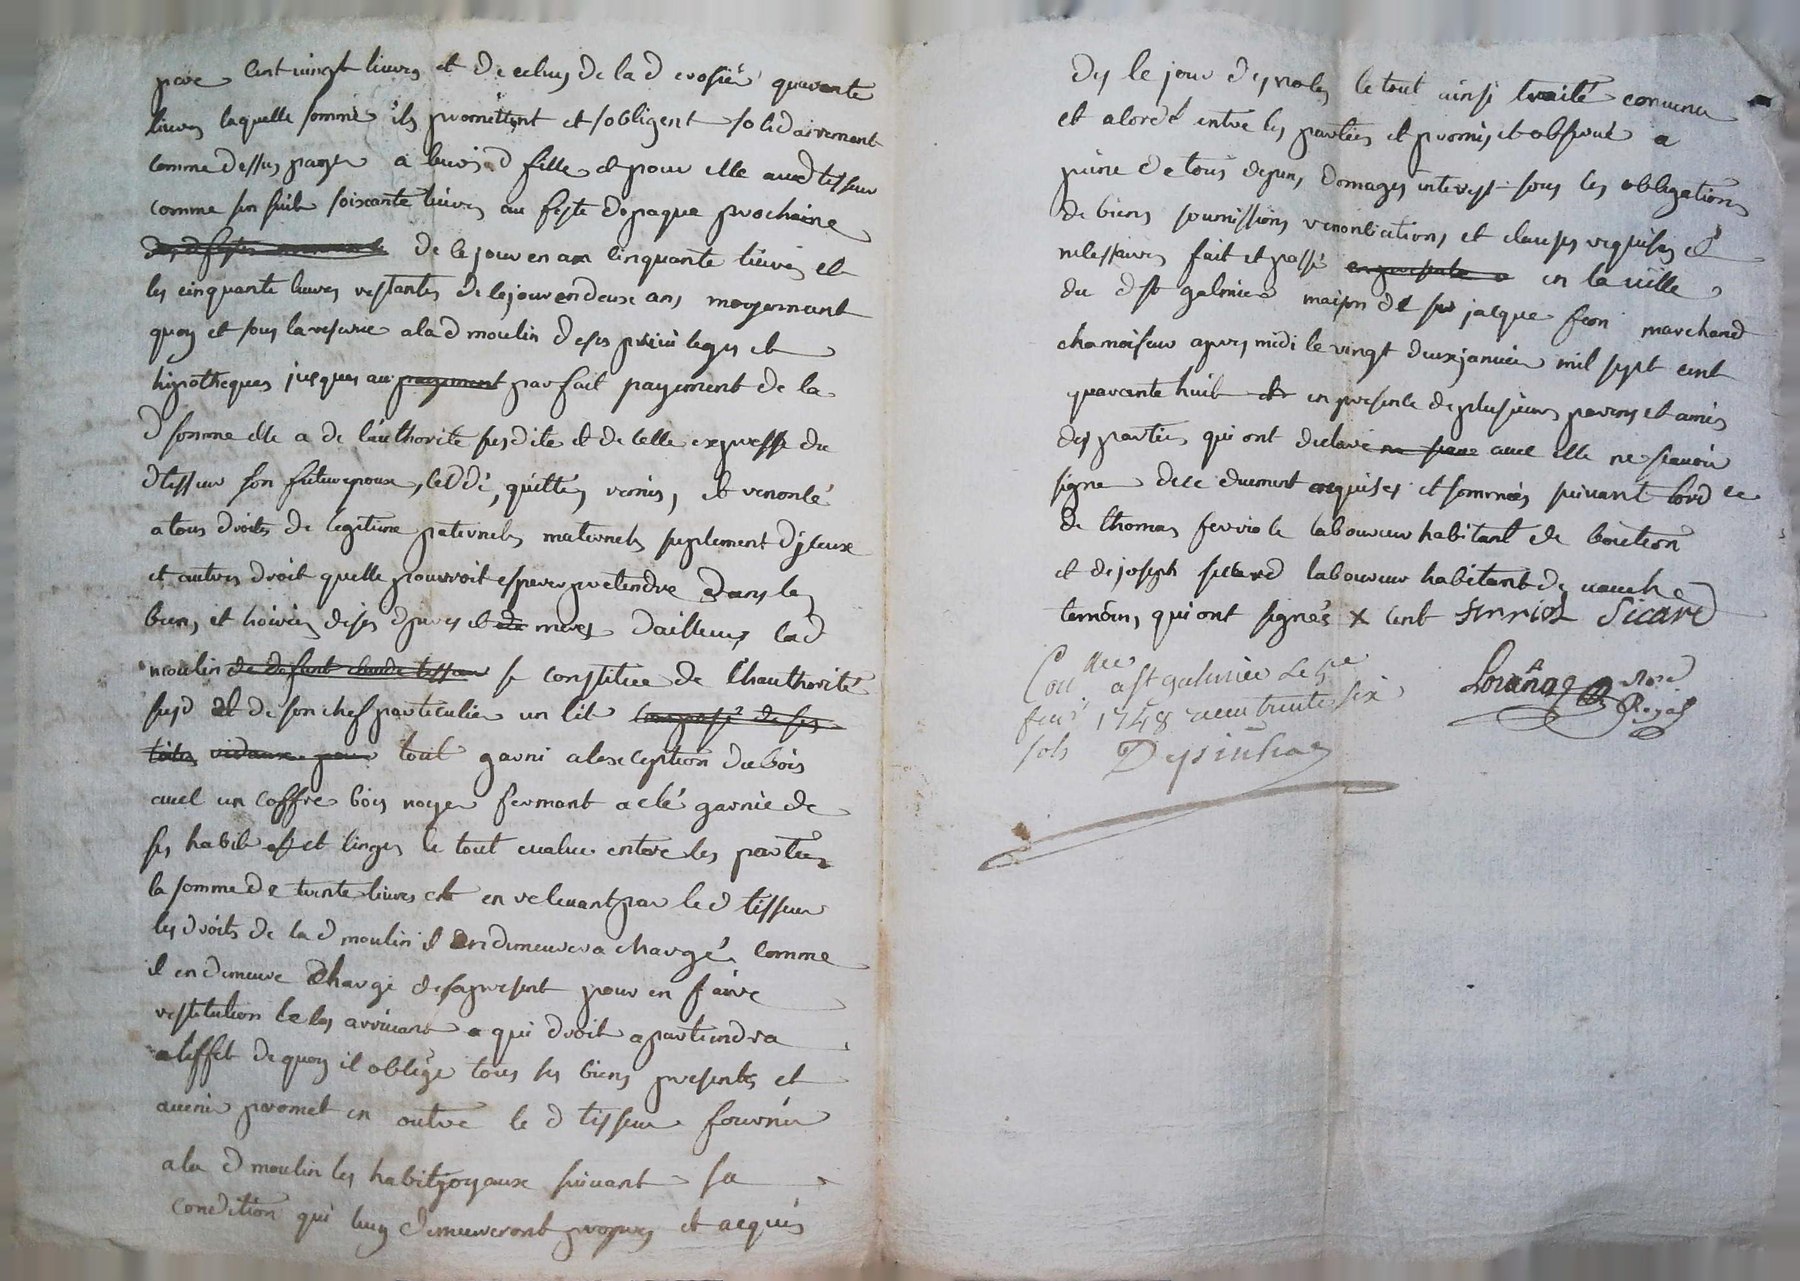 pere cent vingt livres et de celuy de la d crosier quarante
livres laquelle somme ils promettent et sobligent solidairement
comme dessus payer a leurs d fille et pour elle aud tisseur
comme sen suit soixante livres au feste de paque prochaine
de ce jour en an cinquante livres et
les cinquante livres restantes de ce jour en deux ans moyennant
quoy et sous la reserve a la d moulin de ses privileges et
hipotheques jusques au payement parfait payement de la
d somme elle a de l'authorité susdite et de celle expresse du
d tisseur son futur epoux, cedé, quitté, remis, et renoncé
a tous droits de legitime paternels maternels suplement dyceux
et autres droit quelle pourroit esperer pretendre dans les
biens et hoiries de ses d peres et de meres d'ailleurs lad
moulin de defunt claude tisseur se constitue de l'hauthorité
susd et de son chef particulier un lit composé de ses
toiles rideaux pour tout garni a lexception du bois
avec un coffre bois noyer fermant a clé garnie de
ses habits et linges le tout evalué entre les parties
la somme de trente livres et en recevant par le d tisseur
les droits de la d moulin il en demeurera chargé comme
il en demeure chargé desapresent pour en faire
restitution le cas arrivant a qui droit apartiendra
a leffet de quoy il oblige tous ses biens presents et
avenir promet en outre le d tisseur fournir
a la d moulin les habits joyaux suivant sa
condition qui luy demeureront propres et acquis
des le jour des noces le tout ainsi traité convenu
et acordé entre les parties et promis et observé a
peine de tous depens domages interest sous les obligations
de biens soumissions renontiations et clauses requises et
necessaires fait et passé en presence en la ville
du d st galmier maison de sr jacque feon marchand
chamoiseur apres midi le vingt deux janvier mil sept cent
quarante huit et en presence de plusieurs parens et amis
des parties qui ont declaré avec elle ne scavoir
signe de ce duement requises et sommées suivant lord ce
de thomas ferriole laboureur habitant de
et de joseph sicard laboureur habitant de
temoins, qui ont signés x cent ferriol Sicard
Con llee a st galmier le 5e
fevr 1748 recu trente six
sols
Lorange nore
Royal